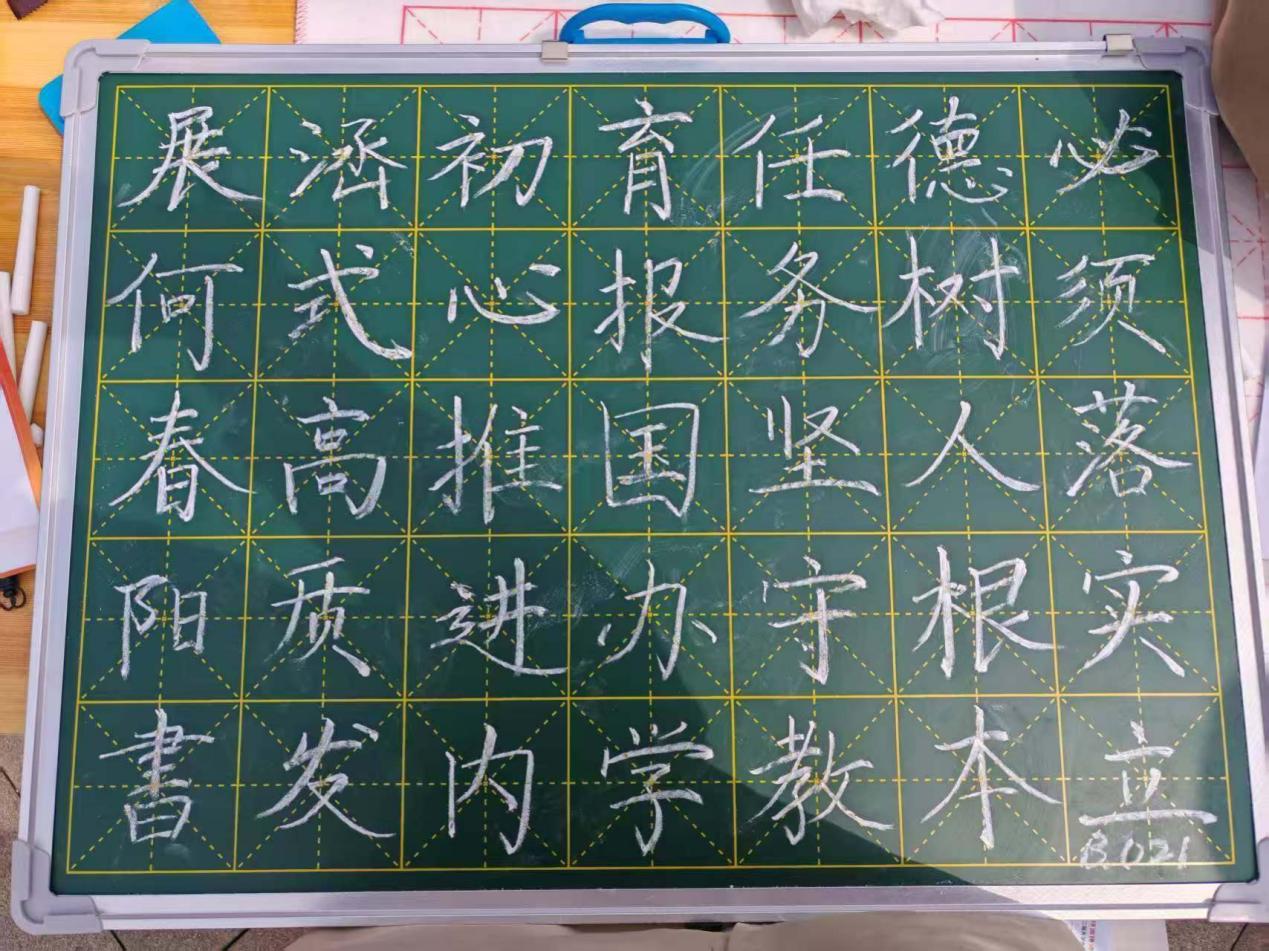 必须落实立
德树人根本
任务坚守教
育报国办学
初心推进内
涵式高质发
展何春阳書
B021